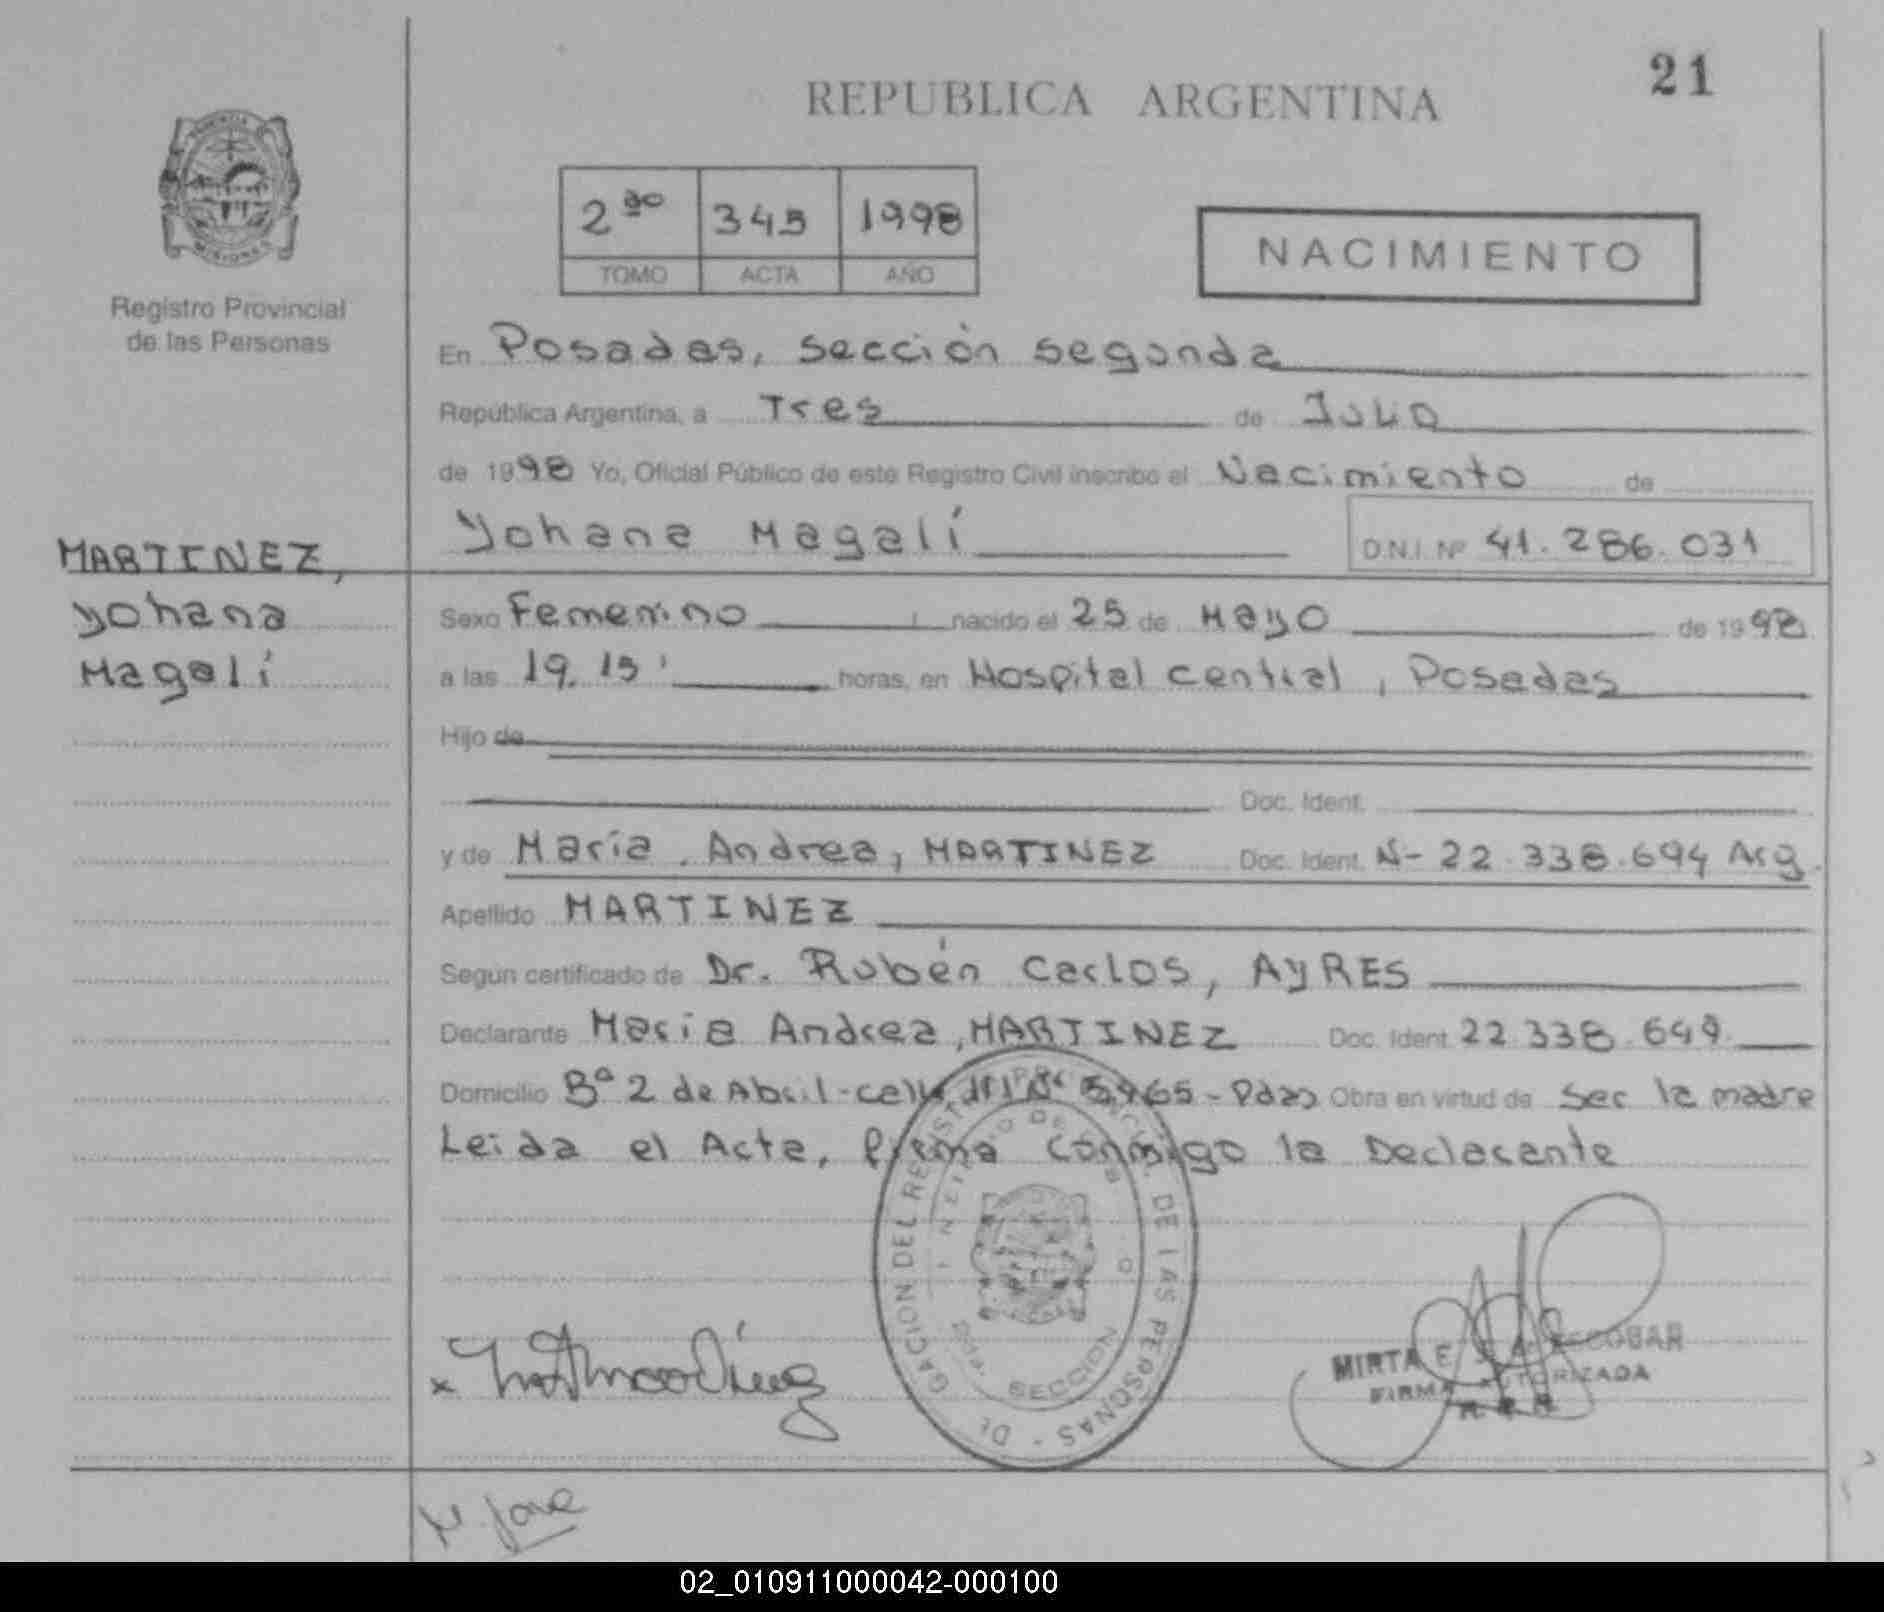 21
REPUBLICA ARGENTINA
2 do 345 1998
TOMO ACTA AÑO
NACIMIENTO
PROVINCIA DE
MISIONES
Registro Provincial
de las Personas
En Posadas, sección segunda
República Argentina, a Tres de Julio
de 1998 Yo, Oficial Público de este Registro Civil inscribo el Nacimiento de
Yohana Magalí D.N.I. Nº 41.286.031
MARTINEZ,
Yohana
Magalí
Sexo Femenino nacido el 25 de Mayo de 1998
a las 19.15' horas, en Hospital central, Posadas
Hijo de
Doc. Ident.
y de María Andrea, MARTINEZ Doc. Ident. N- 22.338.694 Arg.
Apellido MARTINEZ
Según certificado de Dr. Rubén Carlos, AYRES
Declarante María Andrea, MARTINEZ Doc. Ident. 22.338.694.
Domicilio Bº 2 de Abril - Nº 5965 - Pdas Obra en virtud de Ser la madre
Leida el Acta, firma conmigo la Declarante
DELEGACION DEL REGISTRO PROVINCIAL DE LAS PERSONAS
SECCION
x
MIRTA E. ESCOBAR
FIRMA AUTORIZADA
M. José
02_010911000042-000100